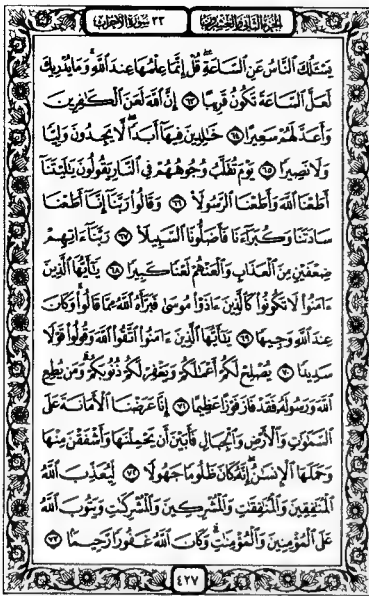 الجزء الثاني والعشرون ٣٣ سورة الأحزاب
يَسْـَٔلُكَ ٱلنَّاسُ عَنِ ٱلسَّاعَةِ ۖ قُلْ إِنَّمَا عِلْمُهَا عِندَ ٱللَّهِ ۚ وَمَا يُدْرِيكَ
لَعَلَّ ٱلسَّاعَةَ تَكُونُ قَرِيبًا ٦٣ إِنَّ ٱللَّهَ لَعَنَ ٱلْكَٰفِرِينَ
وَأَعَدَّ لَهُمْ سَعِيرًا ٦٤ خَٰلِدِينَ فِيهَآ أَبَدًا ۖ لَّا يَجِدُونَ وَلِيًّا
وَلَا نَصِيرًا ٦٥ يَوْمَ تُقَلَّبُ وُجُوهُهُمْ فِى ٱلنَّارِ يَقُولُونَ يَٰلَيْتَنَآ
أَطَعْنَا ٱللَّهَ وَأَطَعْنَا ٱلرَّسُولَا۠ ٦٦ وَقَالُوا۟ رَبَّنَآ إِنَّآ أَطَعْنَا
سَادَتَنَا وَكُبَرَآءَنَا فَأَضَلُّونَا ٱلسَّبِيلَا۠ ٦٧ رَبَّنَآ ءَاتِهِمْ
ضِعْفَيْنِ مِنَ ٱلْعَذَابِ وَٱلْعَنْهُمْ لَعْنًا كَبِيرًا ٦٨ يَٰٓأَيُّهَا ٱلَّذِينَ
ءَامَنُوا۟ لَا تَكُونُوا۟ كَٱلَّذِينَ ءَاذَوْا۟ مُوسَىٰ فَبَرَّأَهُ ٱللَّهُ مِمَّا قَالُوا۟ ۚ وَكَانَ
عِندَ ٱللَّهِ وَجِيهًا ٦٩ يَٰٓأَيُّهَا ٱلَّذِينَ ءَامَنُوا۟ ٱتَّقُوا۟ ٱللَّهَ وَقُولُوا۟ قَوْلًا
سَدِيدًا ٧٠ يُصْلِحْ لَكُمْ أَعْمَٰلَكُمْ وَيَغْفِرْ لَكُمْ ذُنُوبَكُمْ ۗ وَمَن يُطِعِ
ٱللَّهَ وَرَسُولَهُۥ فَقَدْ فَازَ فَوْزًا عَظِيمًا ٧١ إِنَّا عَرَضْنَا ٱلْأَمَانَةَ عَلَى
ٱلسَّمَٰوَٰتِ وَٱلْأَرْضِ وَٱلْجِبَالِ فَأَبَيْنَ أَن يَحْمِلْنَهَا وَأَشْفَقْنَ مِنْهَا
وَحَمَلَهَا ٱلْإِنسَٰنُ ۖ إِنَّهُۥ كَانَ ظَلُومًا جَهُولًا ٧٢ لِّيُعَذِّبَ ٱللَّهُ
ٱلْمُنَٰفِقِينَ وَٱلْمُنَٰفِقَٰتِ وَٱلْمُشْرِكِينَ وَٱلْمُشْرِكَٰتِ وَيَتُوبَ ٱللَّهُ
عَلَى ٱلْمُؤْمِنِينَ وَٱلْمُؤْمِنَٰتِ ۗ وَكَانَ ٱللَّهُ غَفُورًا رَّحِيمًۢا ٧٣
٤٢٧